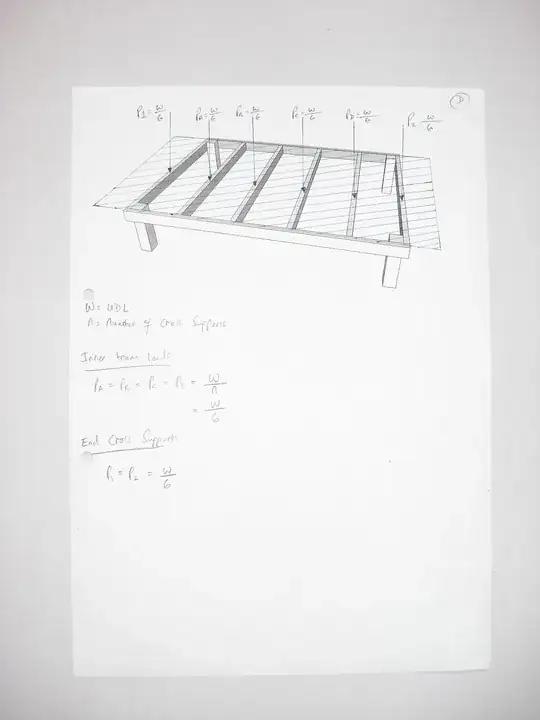 P1 = W/6 PA = W/6 PB = W/6 PC = W/6 PD = W/6 P2 W/6
W = UDL
n = Number of Cross Supports
Inner beam loads
PA = PB = PC = PD = W/n
= W/6
End Cross Supports
P1 = P2 = W/6